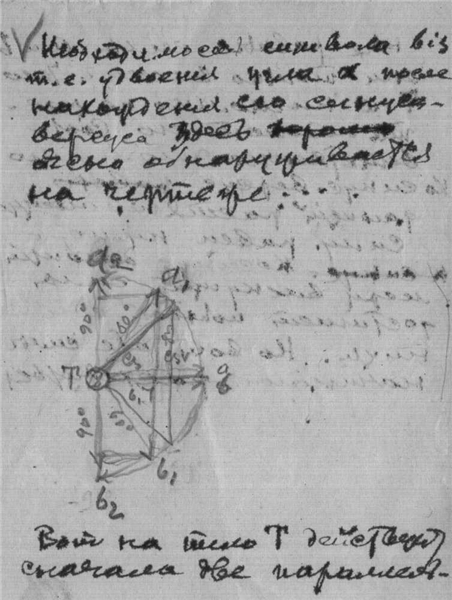 Необходимость символа bis
т.е. удвоения угла α после
нахождения его синус-
версуса здесь
ясно обнаруживается
на чертеже . . .
a2
a1
90°
60°
T
a
b
90°
60°
b1
b2
Вот на тело T действуют
сначала две параллель-